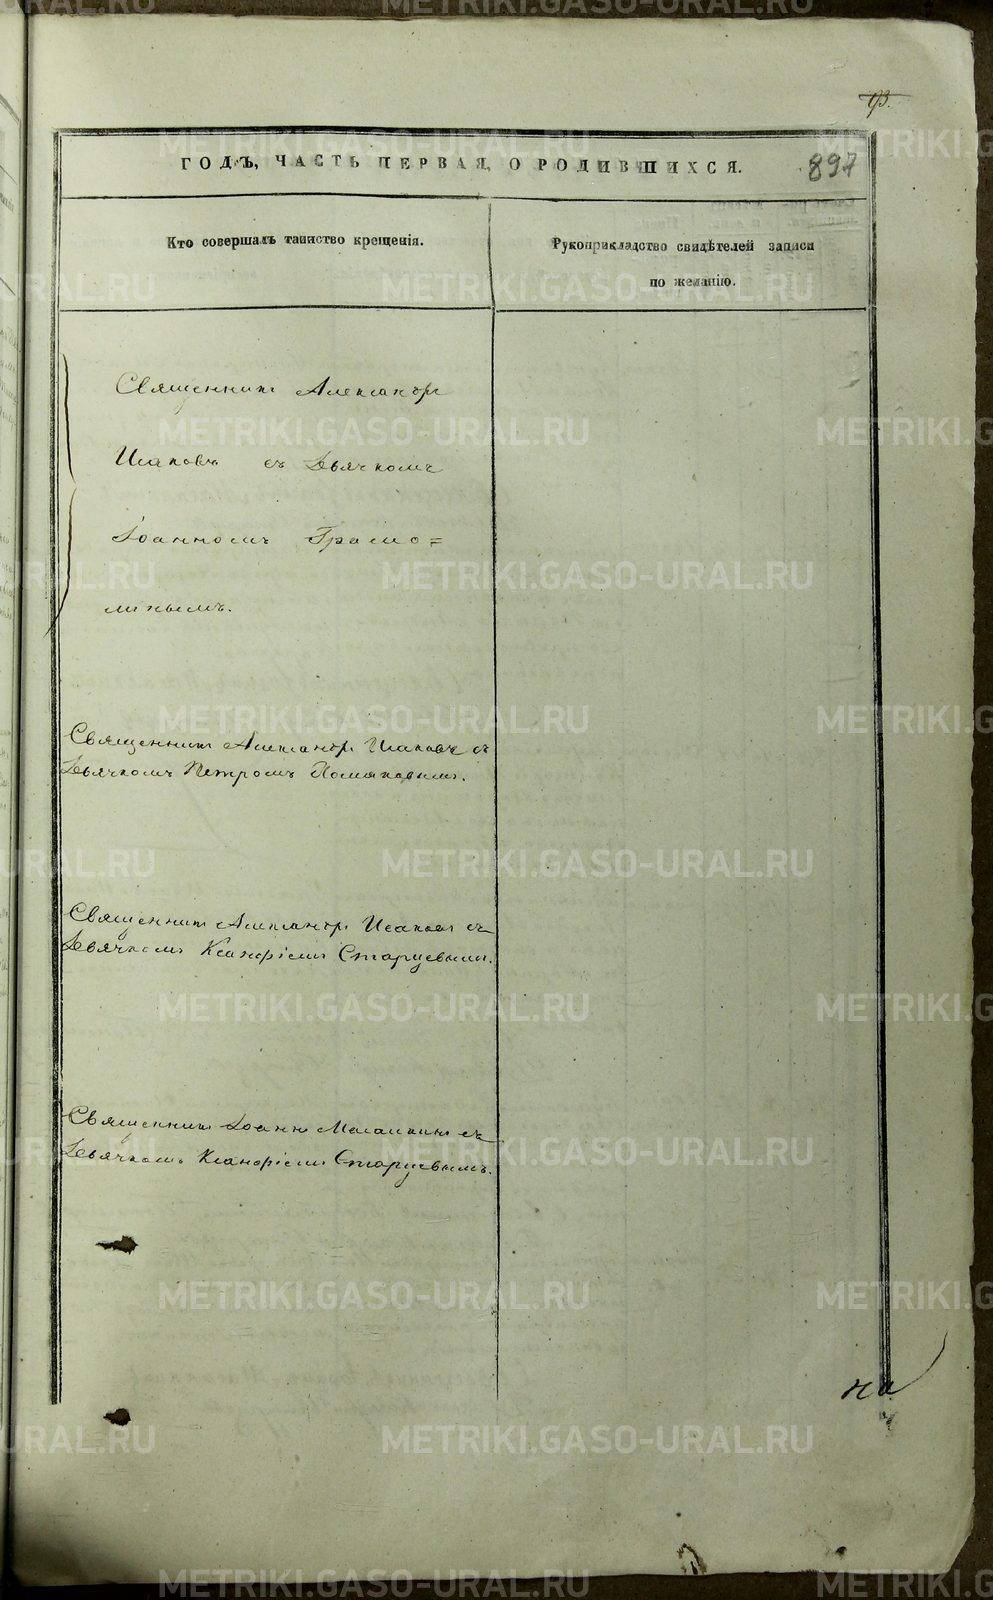 93.
ГОДЪ, ЧАСТЬ ПЕРВАЯ, О РОДИВШИХСЯ.
897
Кто совершалъ таинство крещенія.
Рукоприкладство свидѣтелей записи
по желанію.
Священникъ Александръ
Исаковъ съ Дьячкомъ
Іоанномъ Грамо=
линымъ.
Священникъ Александръ Исаковъ съ
Дьячкомъ Петромъ Хомяковымъ.
Священникъ Александръ Исаковъ съ
Дьячкомъ Ксанфіемъ Старцевымъ.
Священникъ Іоаннъ съ
Дьячкомъ Ксанфіемъ Старцевымъ.
на
METRIKI.GASO-URAL.RU